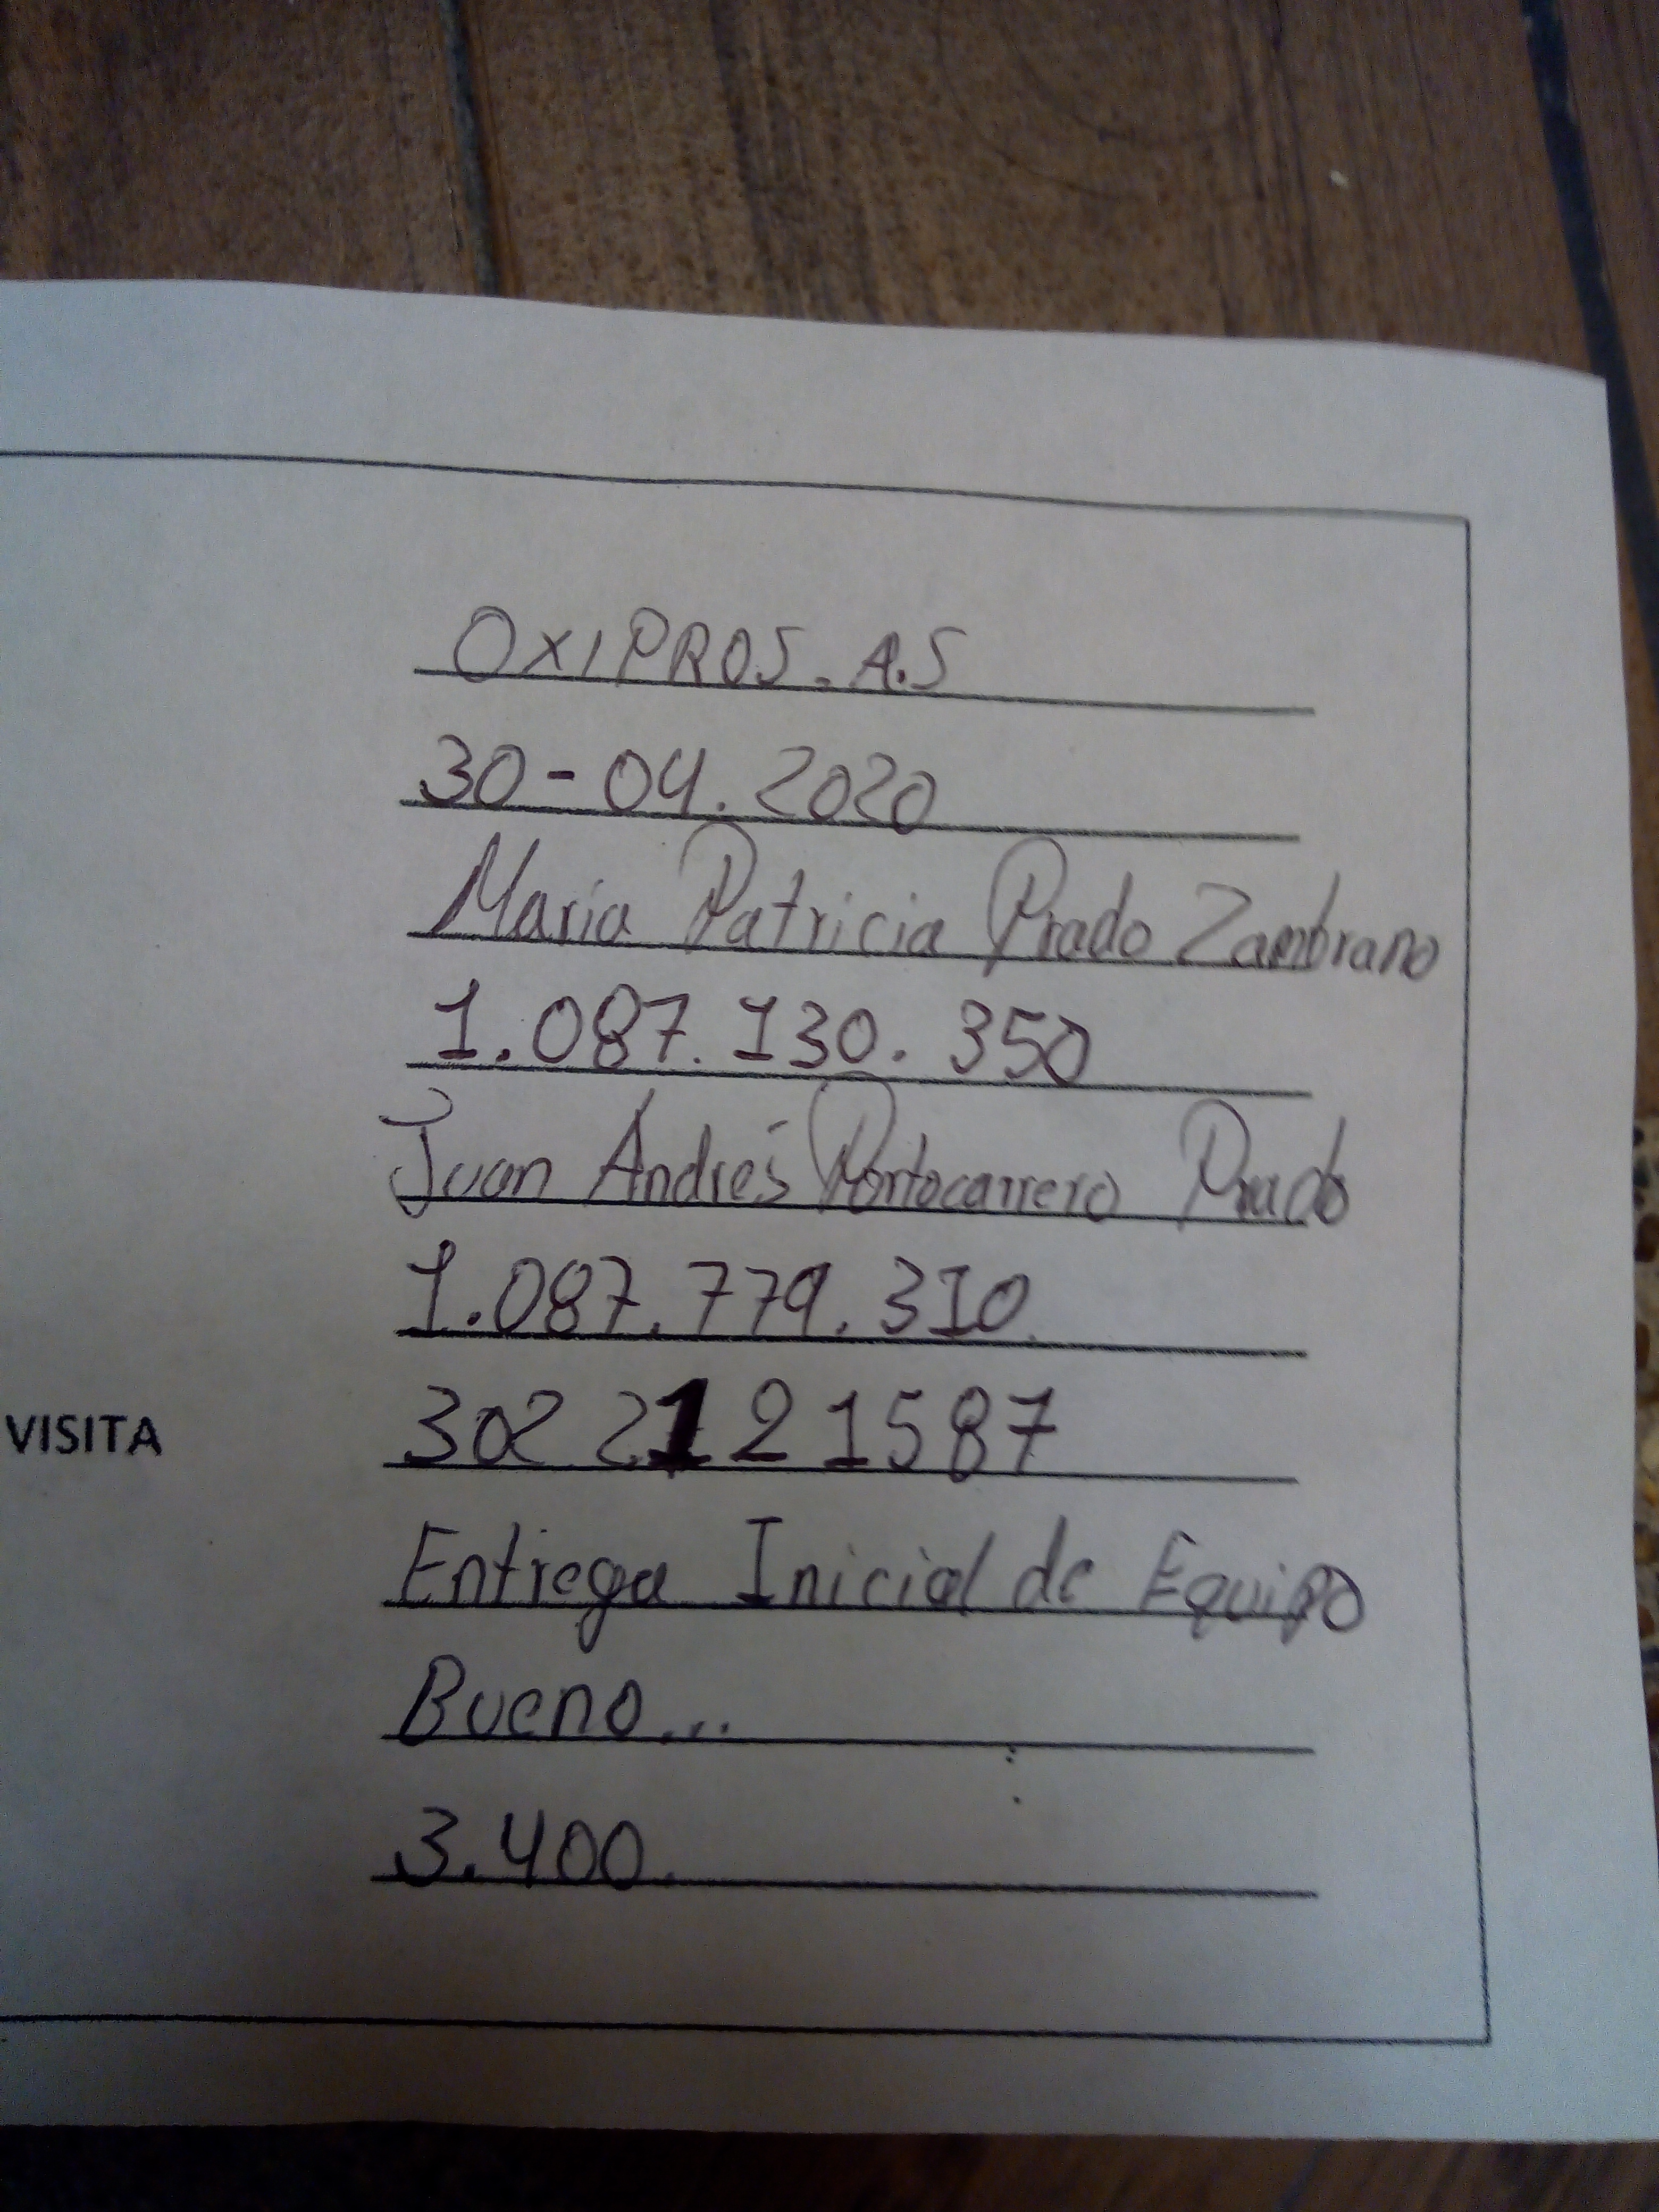 OXIPROS.A.S
30-04.2020
Maria Patricia Prado Zambrano
1.087.130.350
Juan Andrés Portocarrero Prado
1.087.779.310
VISITA 302 2121587
Entrega Inicial de Equipo
Bueno...
3.400.